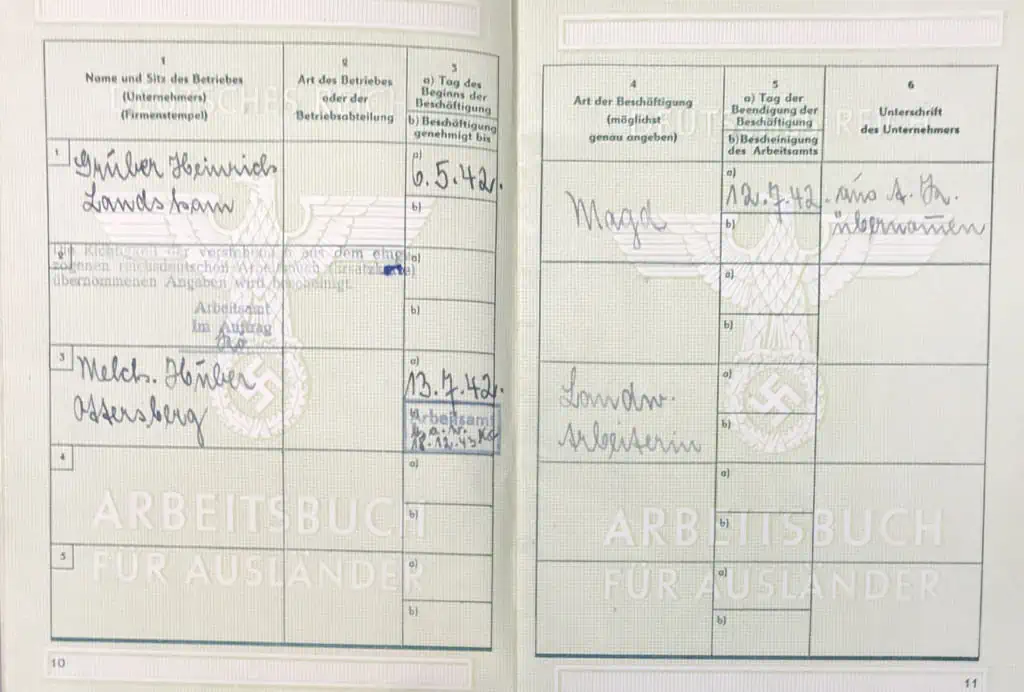 1
Name und Sitz des Betriebes
(Unternehmers)
(Firmenstempel)
2
Art des Betriebes
oder der
Betriebsabteilung
3
a) Tag des
Beginns der
Beschäftigung
b) Beschäftigung
genehmigt bis
1
Grüber Heinrich
Landsham
a)
6.5.42.
b)
2
Die Richtigkeit der vorstehenden aus dem einge-
zogenen reichsdeutschen Arbeitsbuch (Ersatzkarte)
übernommenen Angaben wird bescheinigt.
Arbeitsamt
Im Auftrag
a)
b)
3
Melch. Hüber
Ottersberg
a)
13.7.42.
Arbeitsamt
18.12.43
4
a)
b)
5
a)
b)
DEUTSCHES REICH
ARBEITSBUCH
FÜR AUSLÄNDER
10
4
Art der Beschäftigung
(möglichst
genau angeben)
5
a) Tag der
Beendigung der
Beschäftigung
b) Bescheinigung
des Arbeitsamts
6
Unterschrift
des Unternehmers
Magd
a)
12.7.42.
b)
aus A.
a)
b)
Landw.
Arbeiterin
a)
b)
a)
b)
a)
b)
DEUTSCHES REICH
ARBEITSBUCH
FÜR AUSLÄNDER
11